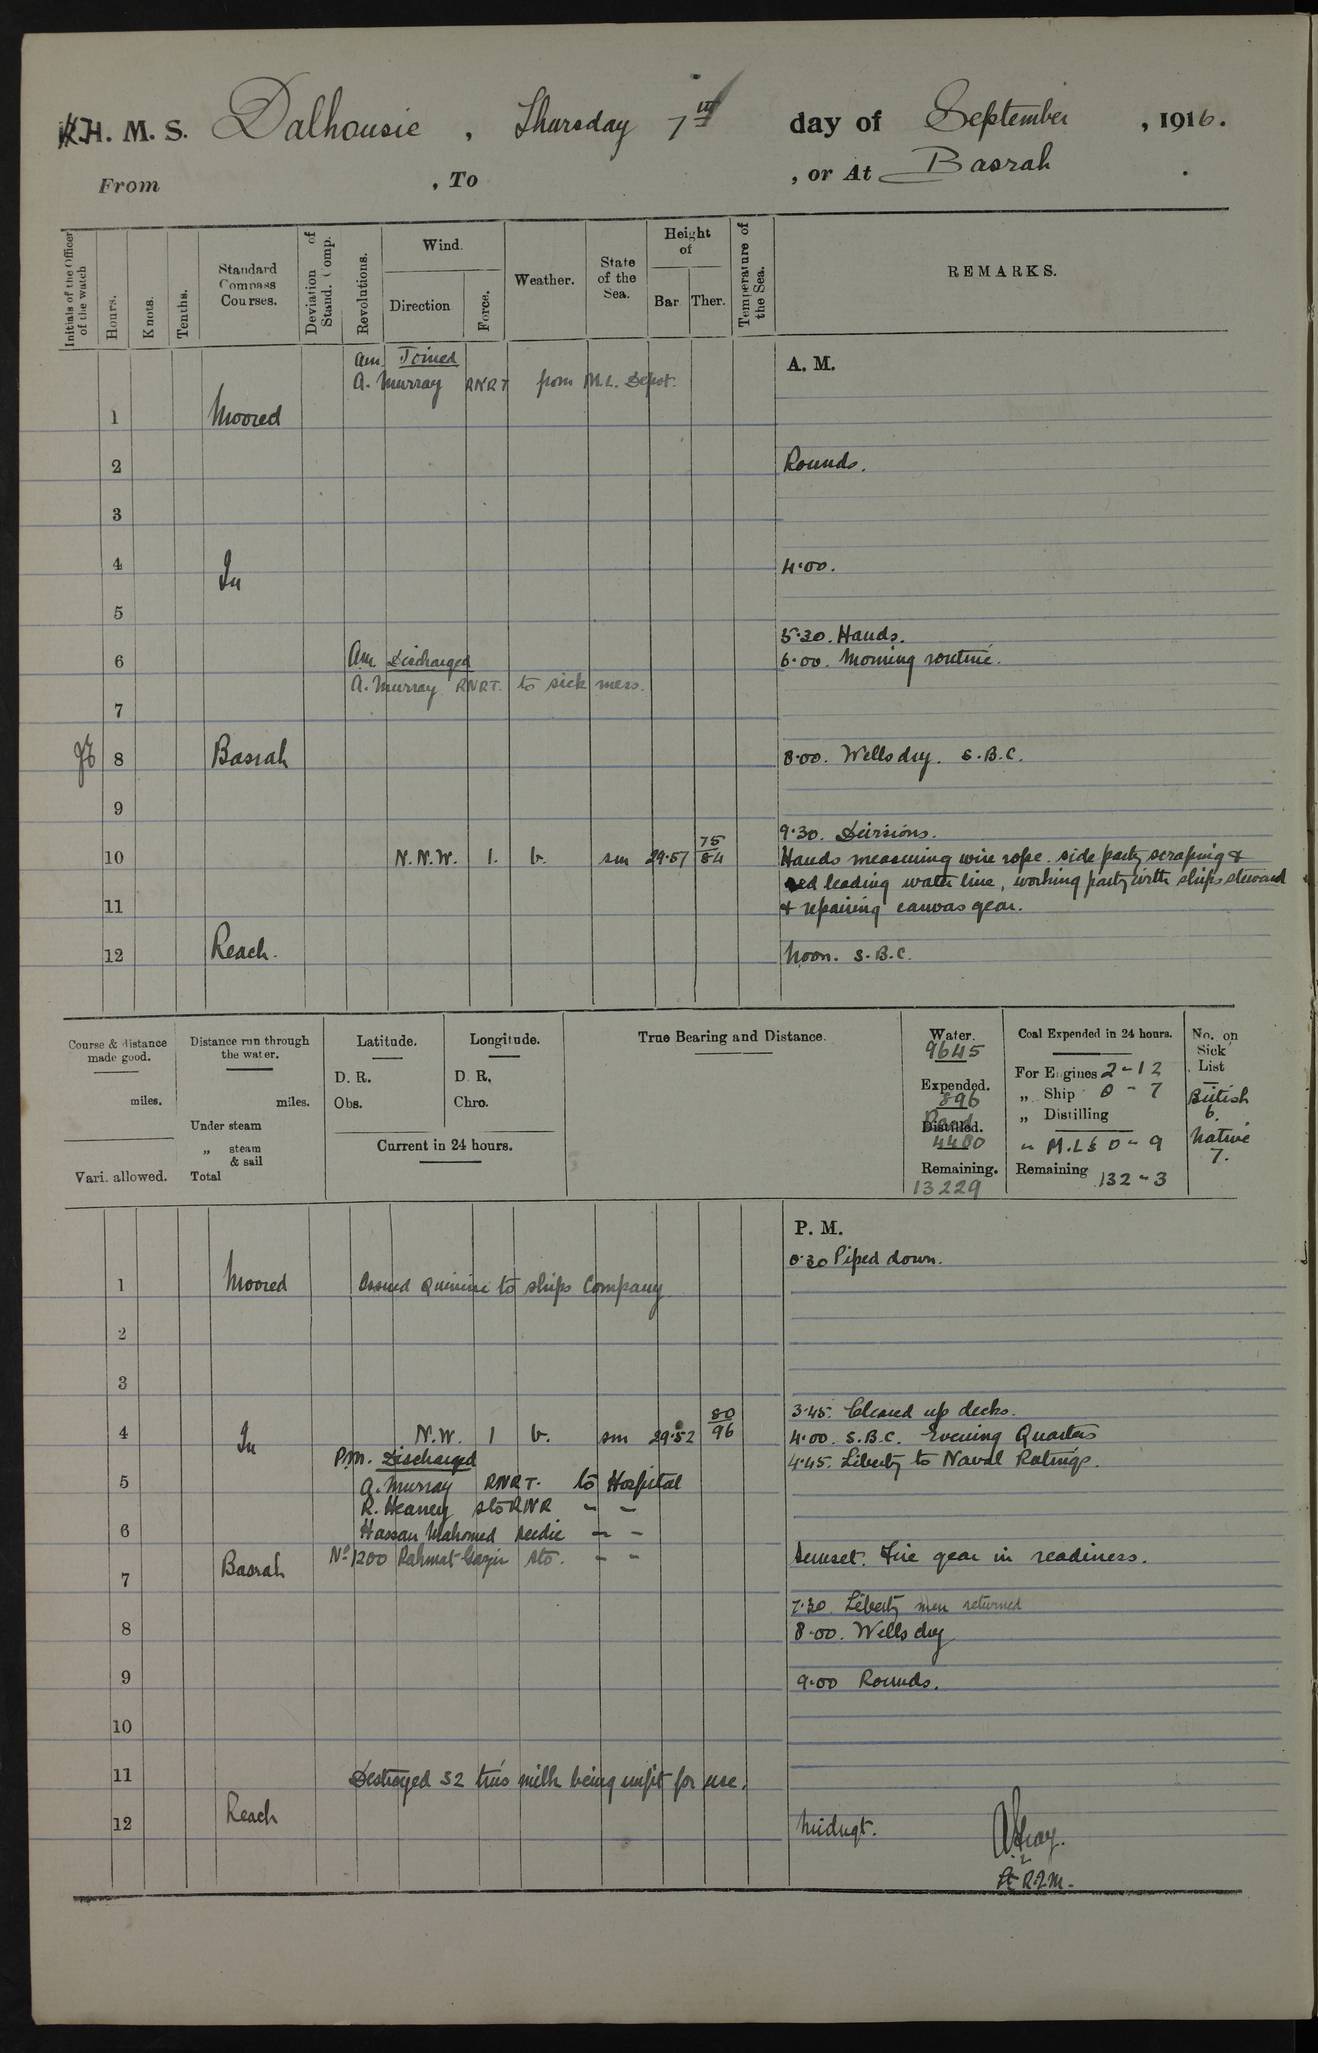 H. M. S. Dalhousie, Thursday 7th day of September, 1916.
From , To , or At Basrah.
Initials of the Officer of the watch
Hours.
Knots.
Tenths.
Standard Compass Courses.
Deviation of Stand. Comp.
Revolutions.
Wind.
Direction
Force.
Weather.
State of the Sea.
Height of
Bar. Ther.
Temperature of the Sea.
REMARKS.
am Joined
A. M.
A. Murray RNRT from M.L. Depot.
1 Moored
2 Rounds.
3
4 In 4.00.
5
5.30. Hands.
6 am Discharged 6.00. Morning routine.
A. Murray RNRT. to sick mess.
7
8 Basrah 8.00. Wells dry. S.B.C.
9
9.30. Divisions.
10 N.N.W. 1. b. sm 29.57 75/84 Hands measuring wire rope. side party scraping &
red leading water line, working party with ships steward
11 & repairing canvas gear.
12 Reach. Noon. S.B.C.
Course & distance made good.
miles.
Vari. allowed.
Distance run through the water.
miles.
Under steam
„ steam & sail
Total
Latitude.
D. R.
Obs.
Longitude.
D. R.
Chro.
Current in 24 hours.
True Bearing and Distance.
Water.
9645
Expended.
896
Distilled.
4480
Remaining.
13229
Coal Expended in 24 hours.
For Engines 2-12
„ Ship 0-7
„ Distilling
„ M.Ls 0-9
Remaining 132-3
No. on Sick List
British
6.
Native
7.
P. M.
0.30 Piped down.
1 Moored Issued Quinine to ships Company
2
3
3.45. Cleared up decks.
4 In N.W. 1 b. sm 29.52 80/96 4.00. S.B.C. Evening Quarters
P.M. Discharged 4.45. Liberty to Naval Ratings.
5 A. Murray RNRT. to Hospital
R. Heaney sto RNR " "
6 Hassan Mahomed seedie " "
Basrah No 1200 Rahmat sto. " " Sunset. Fire gear in readiness.
7
7.30. Liberty men returned
8 8.00. Wells dry
9 9.00 Rounds.
10
11 Destroyed 52 tins milk being unfit for use.
12 Reach Midngt.
R.I.M.